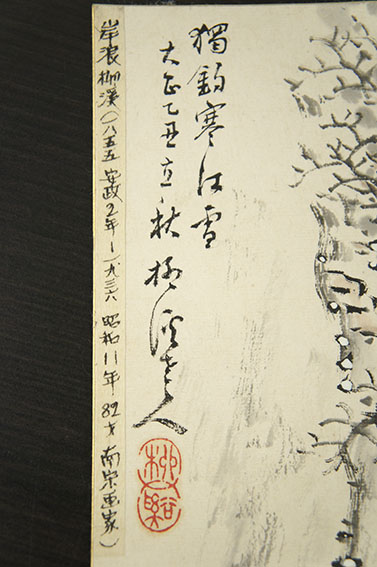 獨釣寒江雪
大正乙丑立秋 柳溪老人
柳谿
岸浪柳溪(一八五五 安政2年-一九三六 昭和11年 82才 南宗画家)